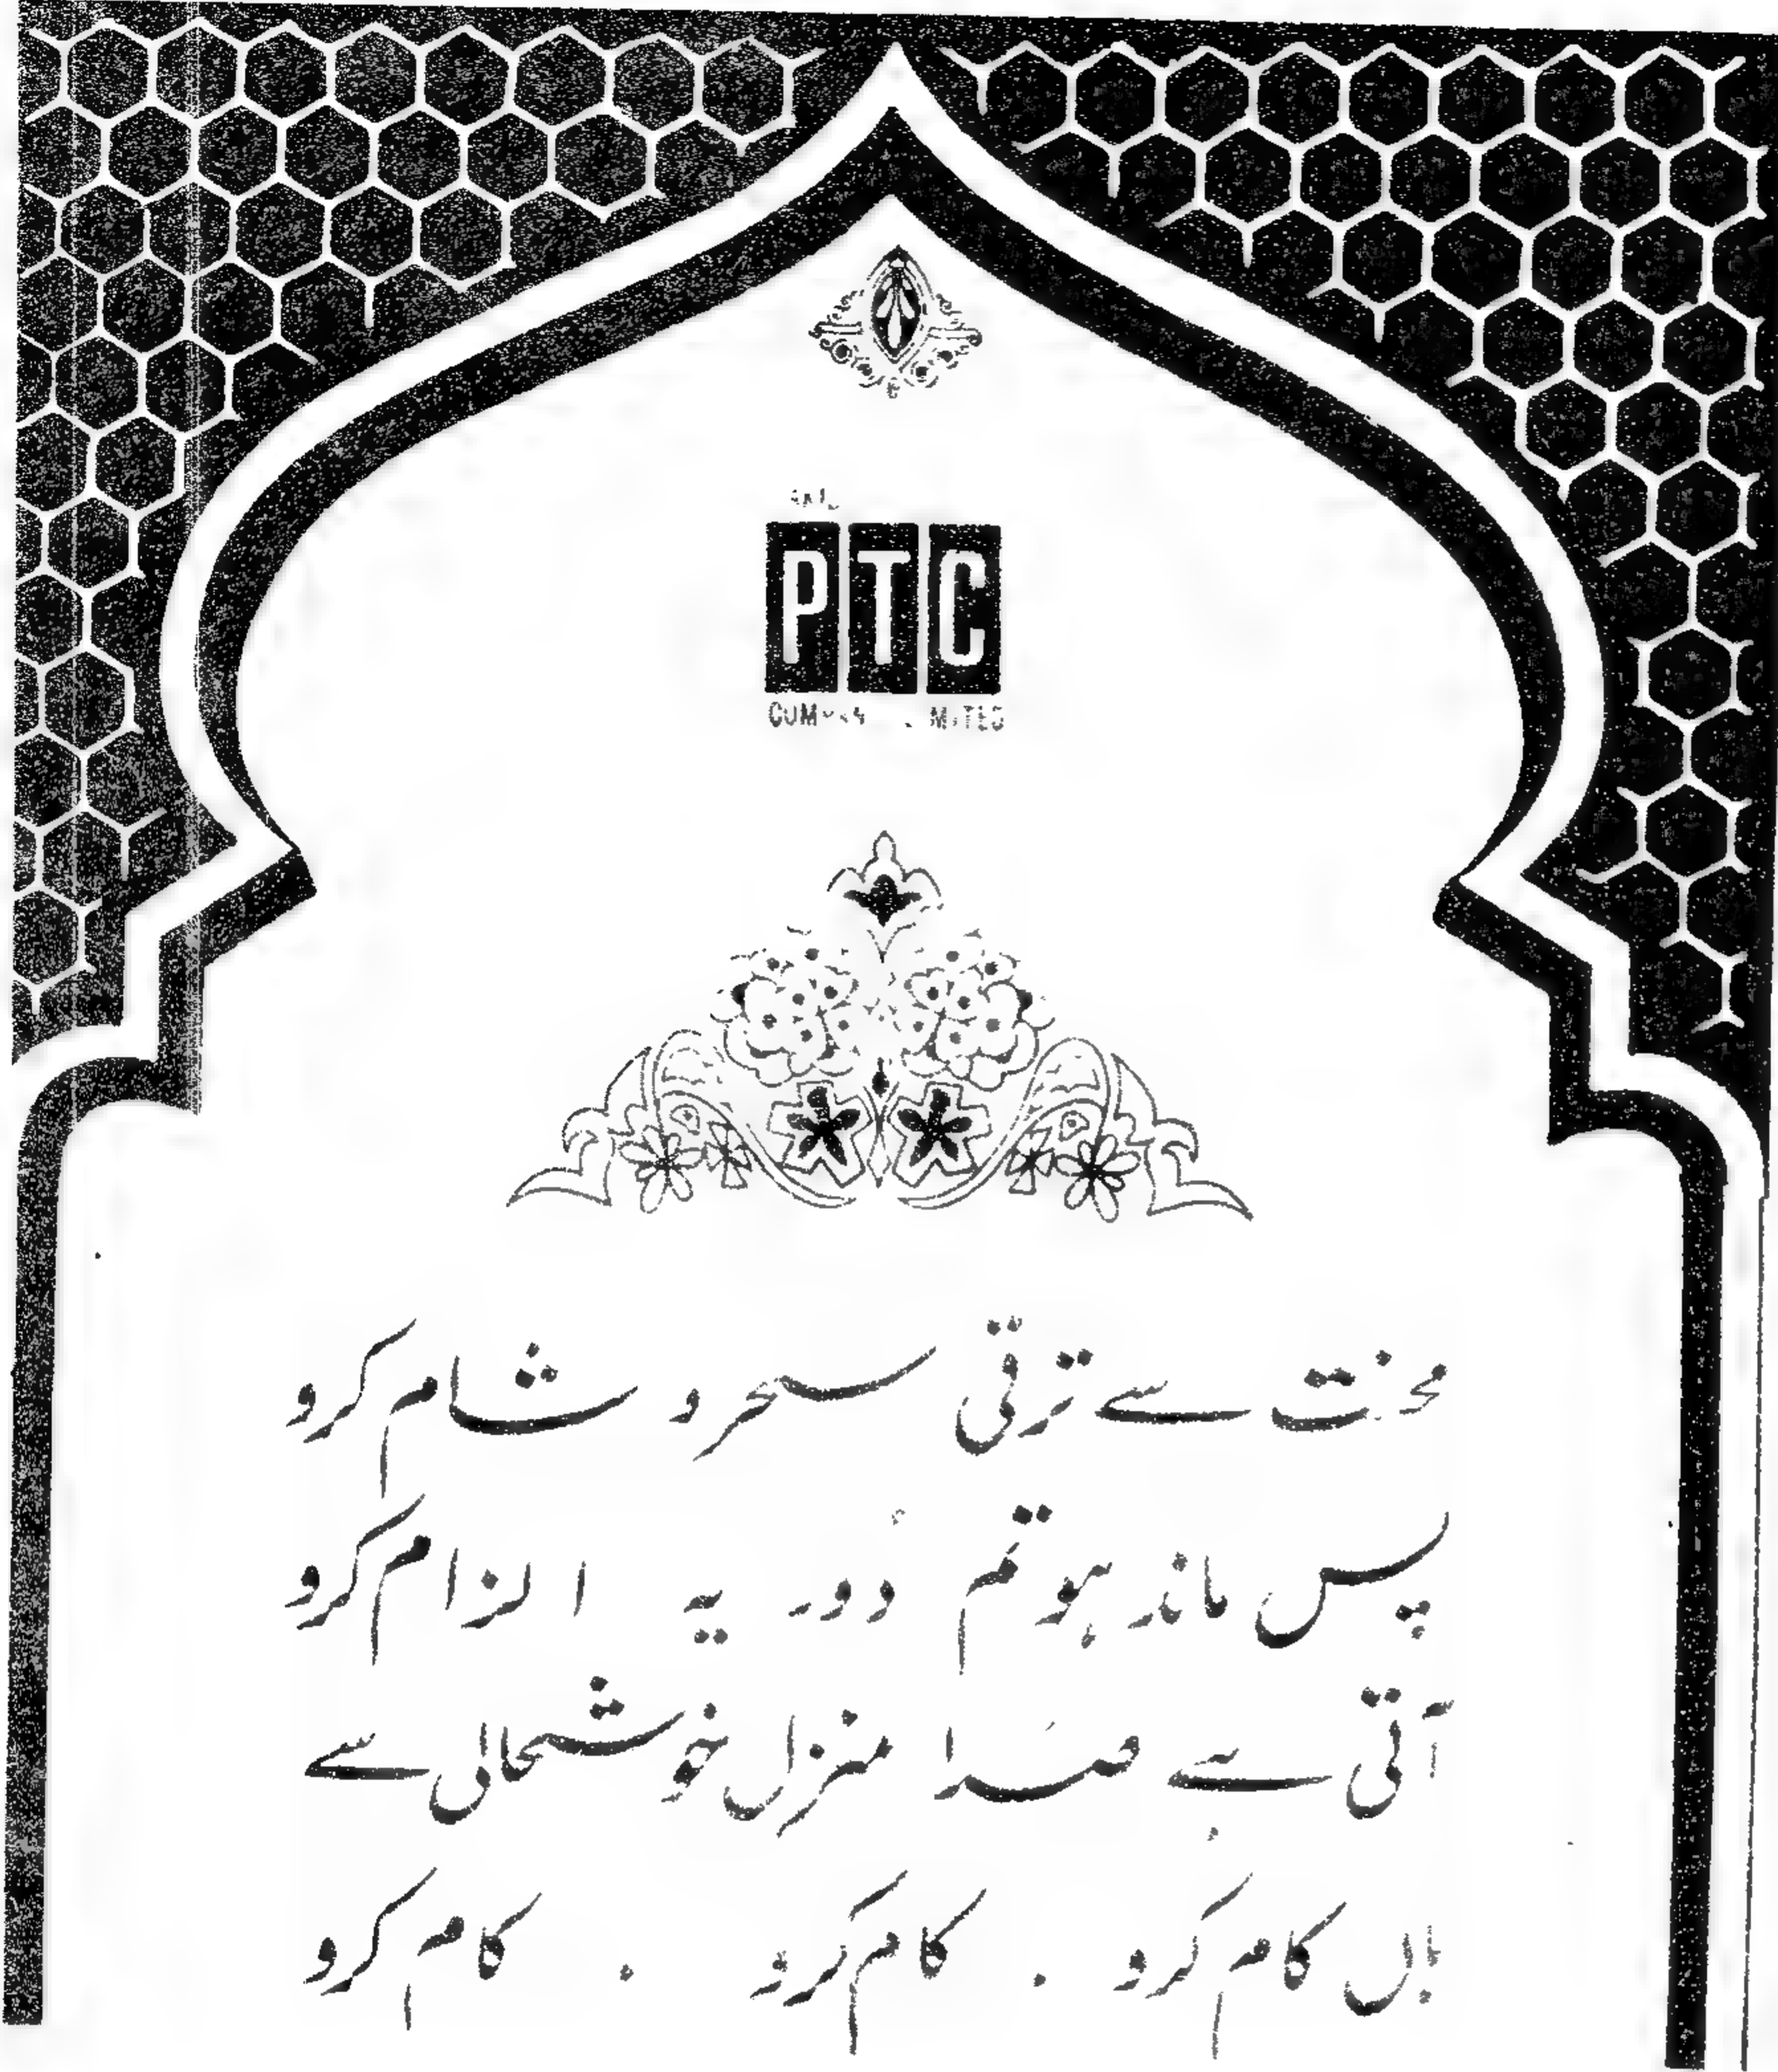 PTC
COMPANY LIMITED
محنت سے ترقی سحر و شام کرو
پس ماندہ ہو تم دُور یہ الزام کرو
آتی ہے صَدا منزل خوشحالی سے
ہاں کام کرو ۔ کام کرو ۔ کام کرو